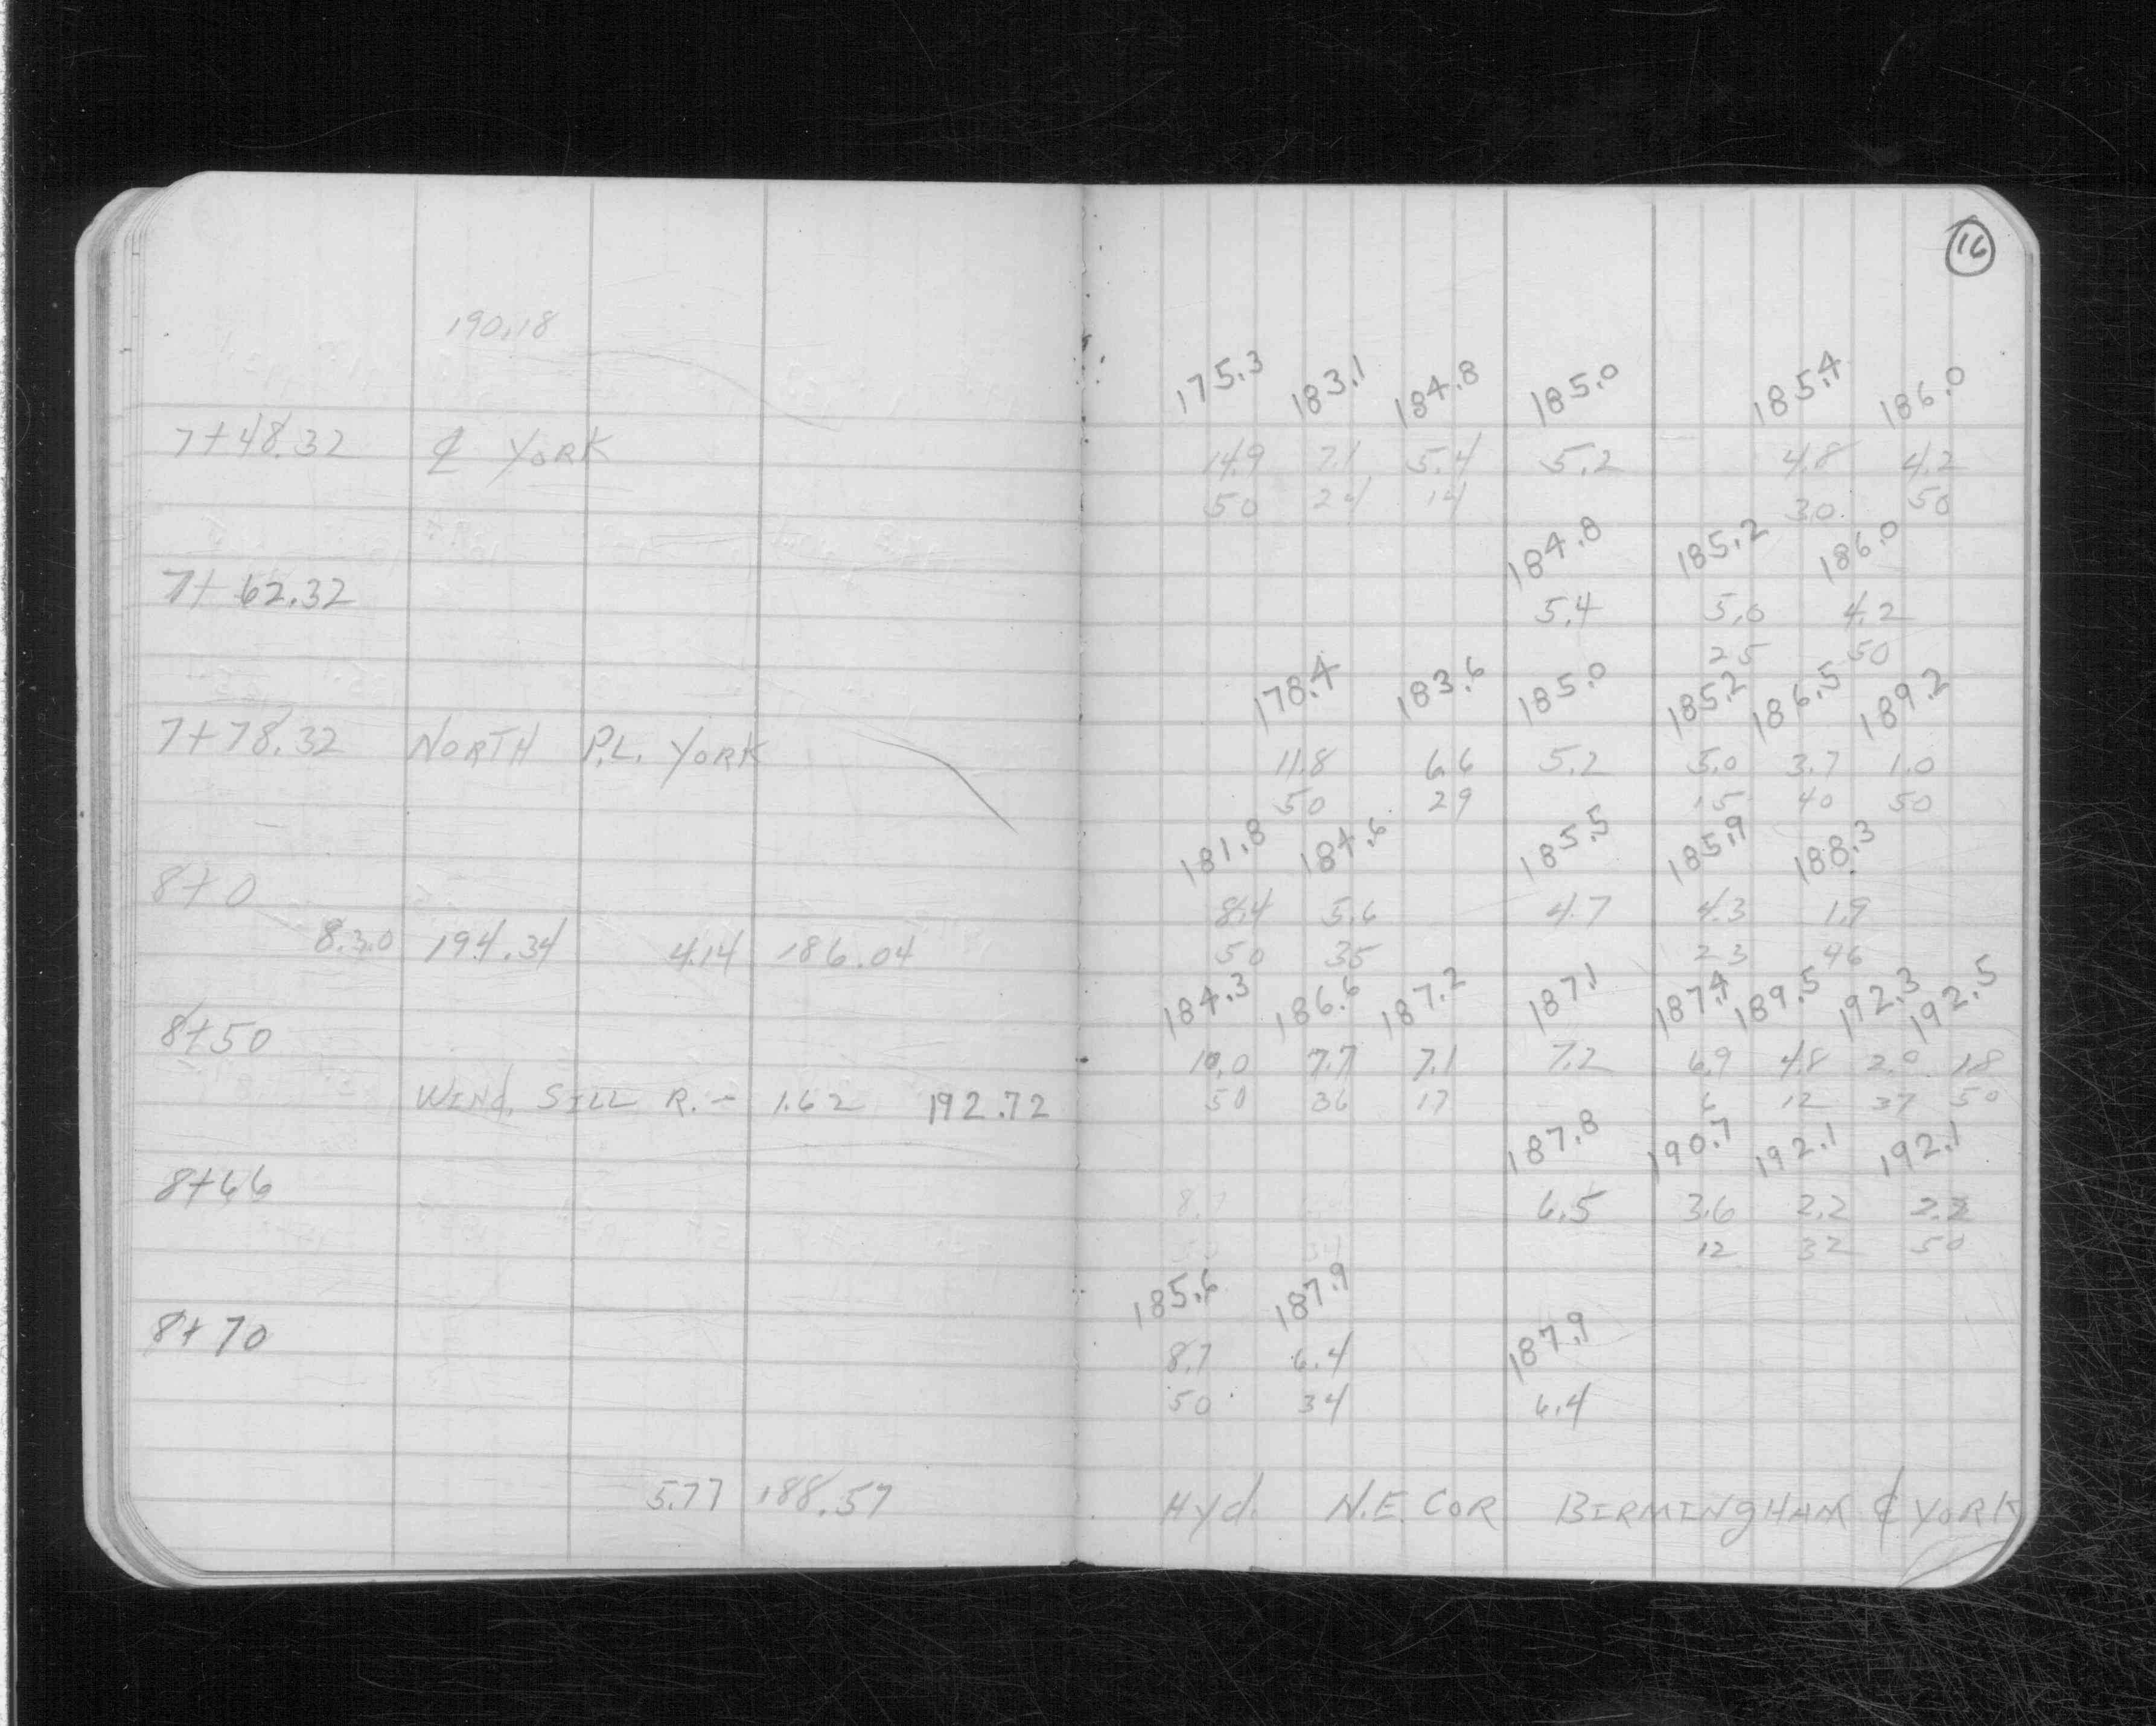 16
190.18
175.3 183.1 184.8 185.0 185.4 186.0
7+48.32 ℄ YORK 14.9 7.1 5.4 5.2 4.8 4.2
50 24 14 30 50
184.8 185.2 186.0
7+62.32 5.4 5.0 4.2
25 50
178.4 183.6 185.0 185.2 186.5 189.2
7+78.32 NORTH P.L. YORK 11.8 6.6 5.2 5.0 3.7 1.0
50 29 15 40 50
181.8 184.6 185.5 185.9 188.3
8+0 8.4 5.6 4.7 4.3 1.9
8.30 194.34 4.14 186.04 50 35 23 46
184.3 186.6 187.2 187.1 187.4 189.5 192.3 192.5
8+50 10.0 7.7 7.1 7.2 6.9 4.8 2.0 1.8
WIND. SILL R. - 1.62 192.72 50 36 17 6 12 37 50
187.8 190.7 192.1 192.1
8+66 8.7 6.5 3.6 2.2 2.2
34 12 32 50
185.6 187.9 187.9
8+70 8.7 6.4
50 34 6.4
5.77 188.57 Hyd. N.E. COR BIRMINGHAM ¢ YORK